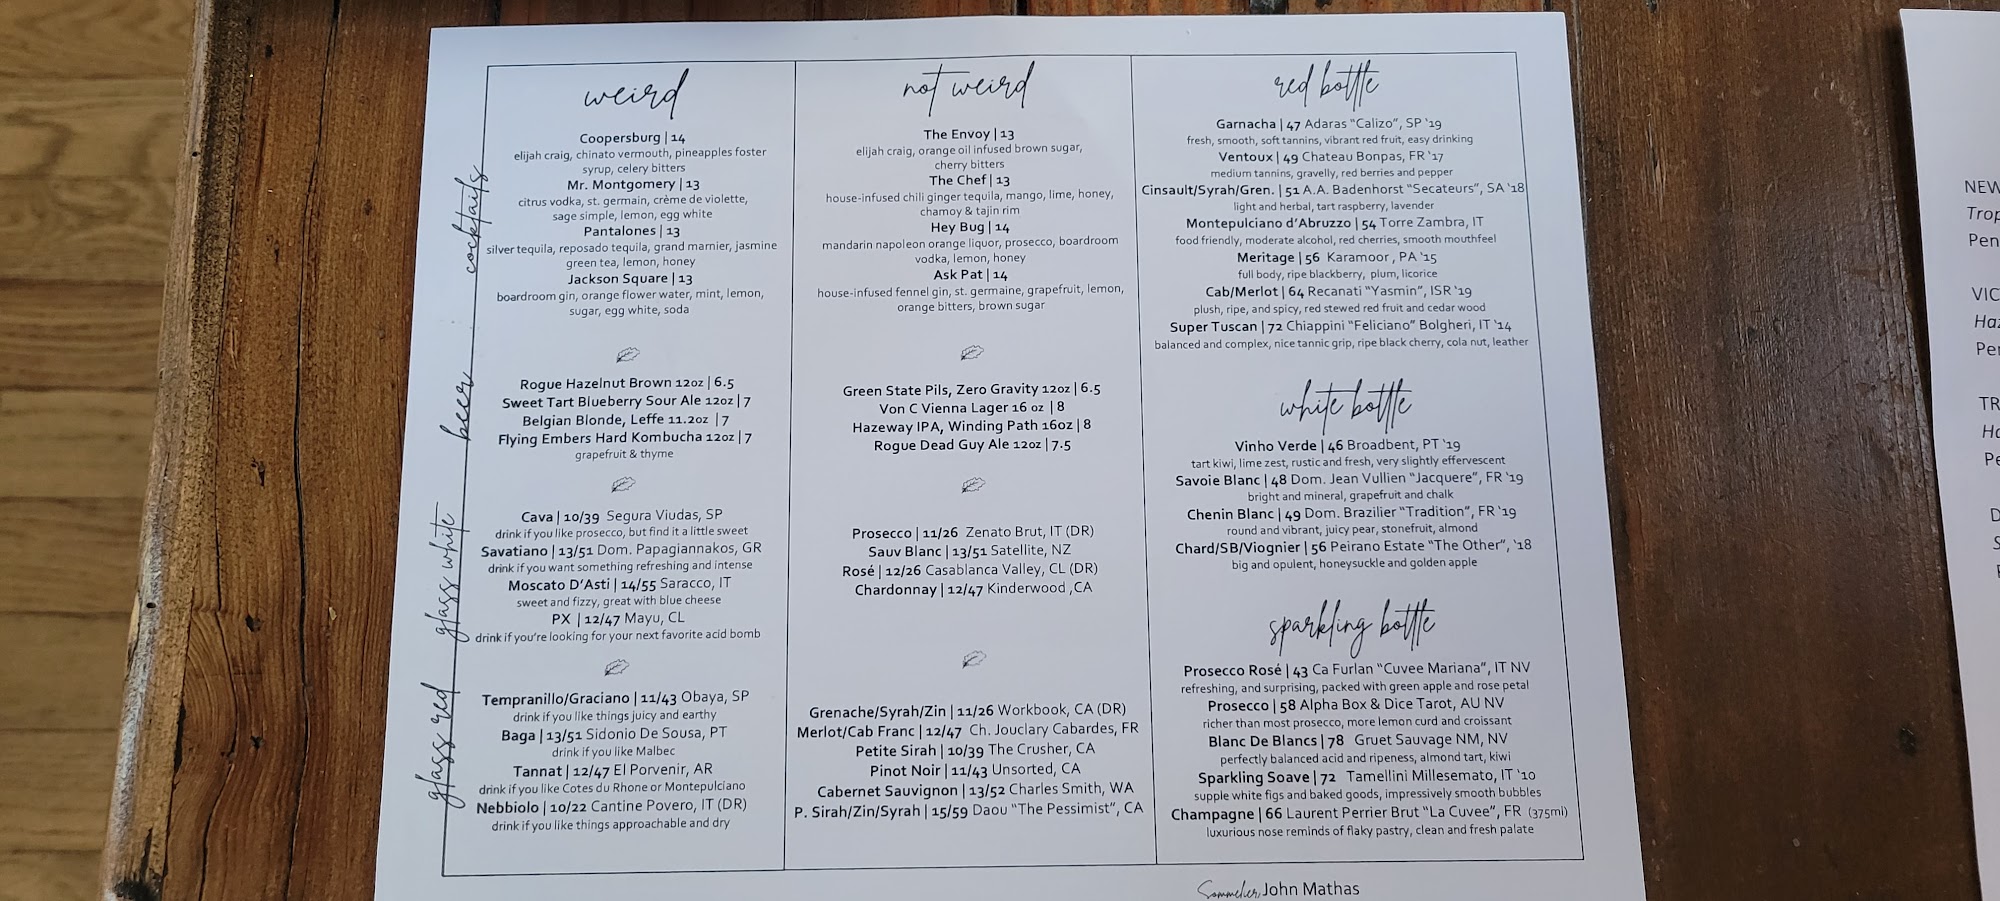 weird
Coopersburg | 14
elijah craig, chinato vermouth, pineapples foster
syrup, celery bitters
Mr. Montgomery | 13
citrus vodka, st. germain, crème de violette,
sage simple, lemon, egg white
Pantalones | 13
silver tequila, reposado tequila, grand marnier, jasmine
green tea, lemon, honey
Jackson Square | 13
boardroom gin, orange flower water, mint, lemon,
sugar, egg white, soda
cocktails
Rogue Hazelnut Brown 12oz | 6.5
Sweet Tart Blueberry Sour Ale 12oz | 7
Belgian Blonde, Leffe 11.2oz | 7
Flying Embers Hard Kombucha 12oz | 7
grapefruit & thyme
beer
Cava | 10/39 Segura Viudas, SP
drink if you like prosecco, but find it a little sweet
Savatiano | 13/51 Dom. Papagiannakos, GR
drink if you want something refreshing and intense
Moscato D'Asti | 14/55 Saracco, IT
sweet and fizzy, great with blue cheese
PX | 12/47 Mayu, CL
drink if you're looking for your next favorite acid bomb
glass white
Tempranillo/Graciano | 11/43 Obaya, SP
drink if you like things juicy and earthy
Baga | 13/51 Sidonio De Sousa, PT
drink if you like Malbec
Tannat | 12/47 El Porvenir, AR
drink if you like Cotes du Rhone or Montepulciano
Nebbiolo | 10/22 Cantine Povero, IT (DR)
drink if you like things approachable and dry
glass red
not weird
The Envoy | 13
elijah craig, orange oil infused brown sugar,
cherry bitters
The Chef | 13
house-infused chili ginger tequila, mango, lime, honey,
chamoy & tajin rim
Hey Bug | 14
mandarin napoleon orange liquor, prosecco, boardroom
vodka, lemon, honey
Ask Pat | 14
house-infused fennel gin, st. germaine, grapefruit, lemon,
orange bitters, brown sugar
Green State Pils, Zero Gravity 12oz | 6.5
Von C Vienna Lager 16 oz | 8
Hazeway IPA, Winding Path 16oz | 8
Rogue Dead Guy Ale 12oz | 7.5
Prosecco | 11/26 Zenato Brut, IT (DR)
Sauv Blanc | 13/51 Satellite, NZ
Rosé | 12/26 Casablanca Valley, CL (DR)
Chardonnay | 12/47 Kinderwood ,CA
Grenache/Syrah/Zin | 11/26 Workbook, CA (DR)
Merlot/Cab Franc | 12/47 Ch. Jouclary Cabardes, FR
Petite Sirah | 10/39 The Crusher, CA
Pinot Noir | 11/43 Unsorted, CA
Cabernet Sauvignon | 13/52 Charles Smith, WA
P. Sirah/Zin/Syrah | 15/59 Daou "The Pessimist", CA
red bottle
Garnacha | 47 Adaras "Calizo", SP '19
fresh, smooth, soft tannins, vibrant red fruit, easy drinking
Ventoux | 49 Chateau Bonpas, FR '17
medium tannins, gravelly, red berries and pepper
Cinsault/Syrah/Gren. | 51 A.A. Badenhorst "Secateurs", SA '18
light and herbal, tart raspberry, lavender
Montepulciano d'Abruzzo | 54 Torre Zambra, IT
food friendly, moderate alcohol, red cherries, smooth mouthfeel
Meritage | 56 Karamoor , PA '15
full body, ripe blackberry, plum, licorice
Cab/Merlot | 64 Recanati "Yasmin", ISR '19
plush, ripe, and spicy, red stewed red fruit and cedar wood
Super Tuscan | 72 Chiappini "Feliciano" Bolgheri, IT '14
balanced and complex, nice tannic grip, ripe black cherry, cola nut, leather
white bottle
Vinho Verde | 46 Broadbent, PT '19
tart kiwi, lime zest, rustic and fresh, very slightly effervescent
Savoie Blanc | 48 Dom. Jean Vullien "Jacquere", FR '19
bright and mineral, grapefruit and chalk
Chenin Blanc | 49 Dom. Brazilier "Tradition", FR '19
round and vibrant, juicy pear, stonefruit, almond
Chard/SB/Viognier | 56 Peirano Estate "The Other", '18
big and opulent, honeysuckle and golden apple
sparkling bottle
Prosecco Rosé | 43 Ca Furlan "Cuvee Mariana", IT NV
refreshing, and surprising, packed with green apple and rose petal
Prosecco | 58 Alpha Box & Dice Tarot, AU NV
richer than most prosecco, more lemon curd and croissant
Blanc De Blancs | 78 Gruet Sauvage NM, NV
perfectly balanced acid and ripeness, almond tart, kiwi
Sparkling Soave | 72 Tamellini Millesemato, IT '10
supple white figs and baked goods, impressively smooth bubbles
Champagne | 66 Laurent Perrier Brut "La Cuvee", FR (375ml)
luxurious nose reminds of flaky pastry, clean and fresh palate
Sommelier, John Mathas
NEW
Trop
Pen
VIC
Haz
Per
TR
Ha
Pe
D
S